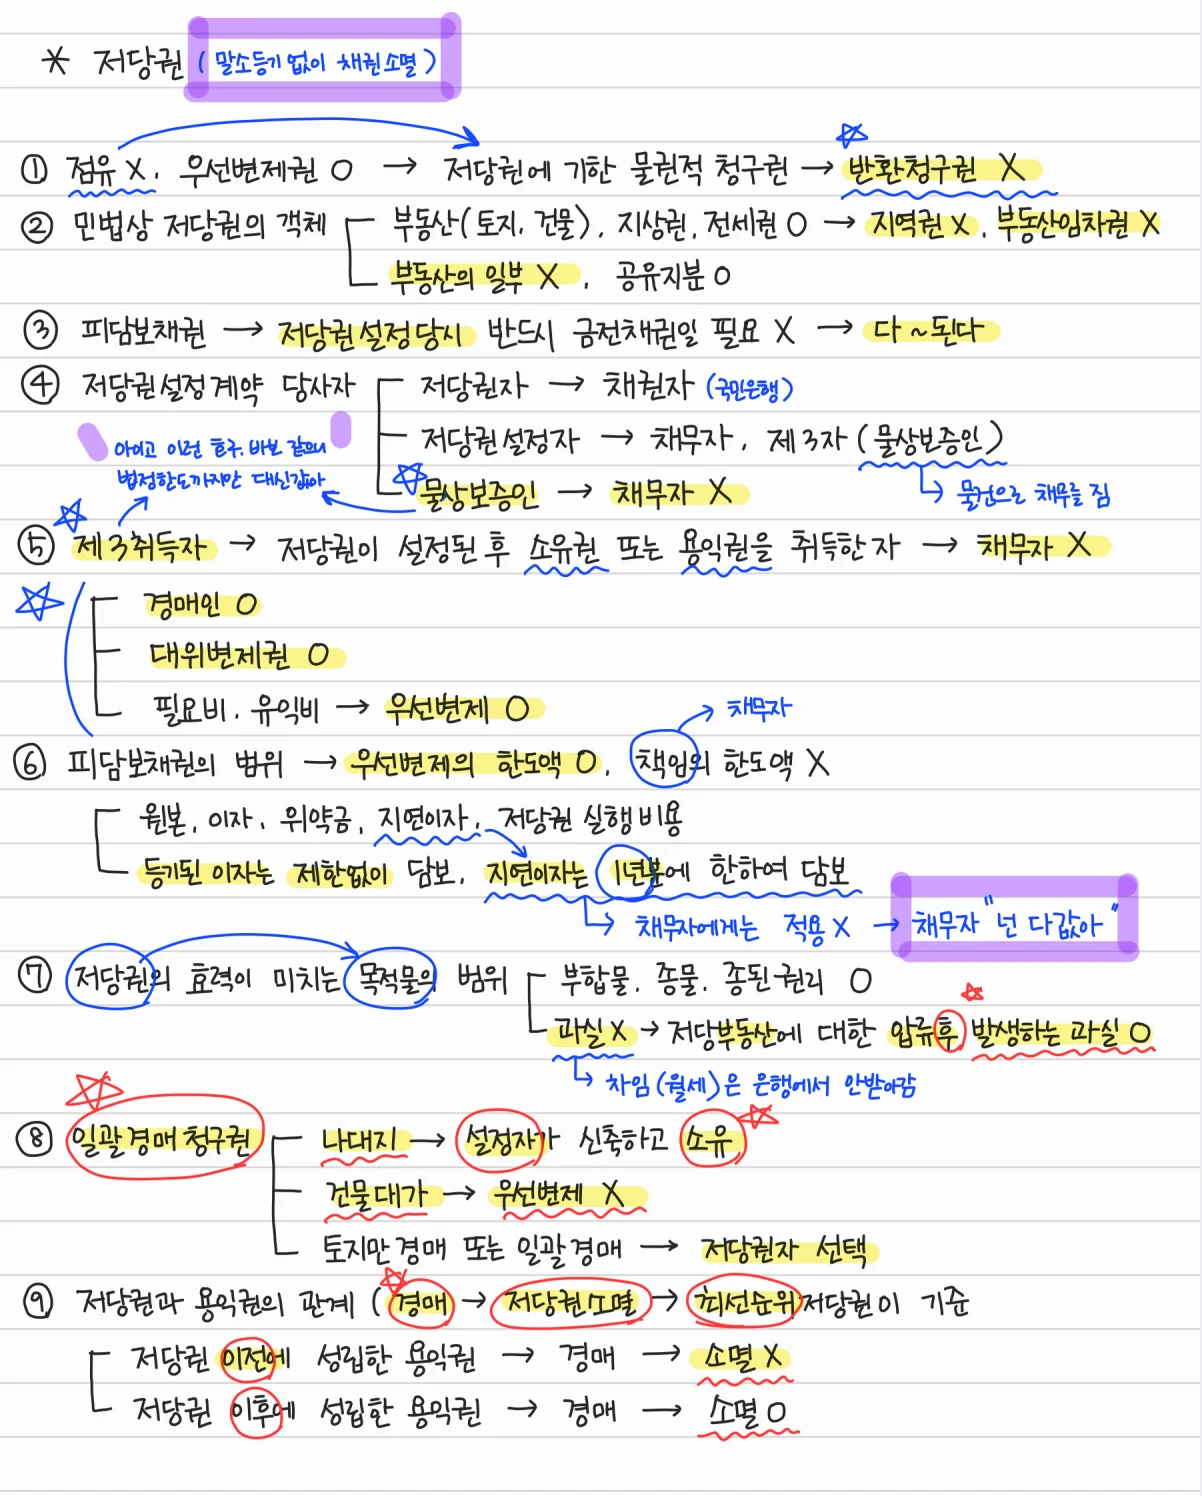 * 저당권 (말소등기 없이 채권소멸)
① 점유 X, 우선변제권 O → 저당권에 기한 물권적 청구권 → 반환청구권 X
② 민법상 저당권의 객체 부동산(토지, 건물), 지상권, 전세권 O → 지역권 X, 부동산임차권 X
부동산의 일부 X, 공유지분 O
③ 피담보채권 → 저당권설정당시 반드시 금전채권일 필요 X → 다~된다
④ 저당권설정계약 당사자 저당권자 → 채권자 (국민은행)
저당권설정자 → 채무자, 제3자 (물상보증인)
아이고 이런 호구, 바보 같으니
법정한도까지만 대신갚아
물상보증인 → 채무자 X
물건으로 채무를 짐
⑤ 제3취득자 → 저당권이 설정된 후 소유권 또는 용익권을 취득한 자 → 채무자 X
경매인 O
대위변제권 O
필요비, 유익비 → 우선변제 O
→ 채무자
⑥ 피담보채권의 범위 → 우선변제의 한도액 O, 책임의 한도액 X
원본, 이자, 위약금, 지연이자, 저당권 실행비용
등기된 이자는 제한없이 담보, 지연이자는 1년분에 한하여 담보
채무자에게는 적용 X → 채무자 "넌 다갚아"
⑦ 저당권의 효력이 미치는 목적물의 범위 부합물, 종물, 종된권리 O
과실 X → 저당부동산에 대한 압류후 발생하는 과실 O
차임(월세)은 은행에서 안받아감
⑧ 일괄경매청구권 나대지 → 설정자가 신축하고 소유
건물대가 → 우선변제 X
토지만경매 또는 일괄경매 → 저당권자 선택
⑨ 저당권과 용익권의 관계 (경매 → 저당권소멸 → 최선순위저당권이 기준
저당권 이전에 성립한 용익권 → 경매 → 소멸 X
저당권 이후에 성립한 용익권 → 경매 → 소멸 O